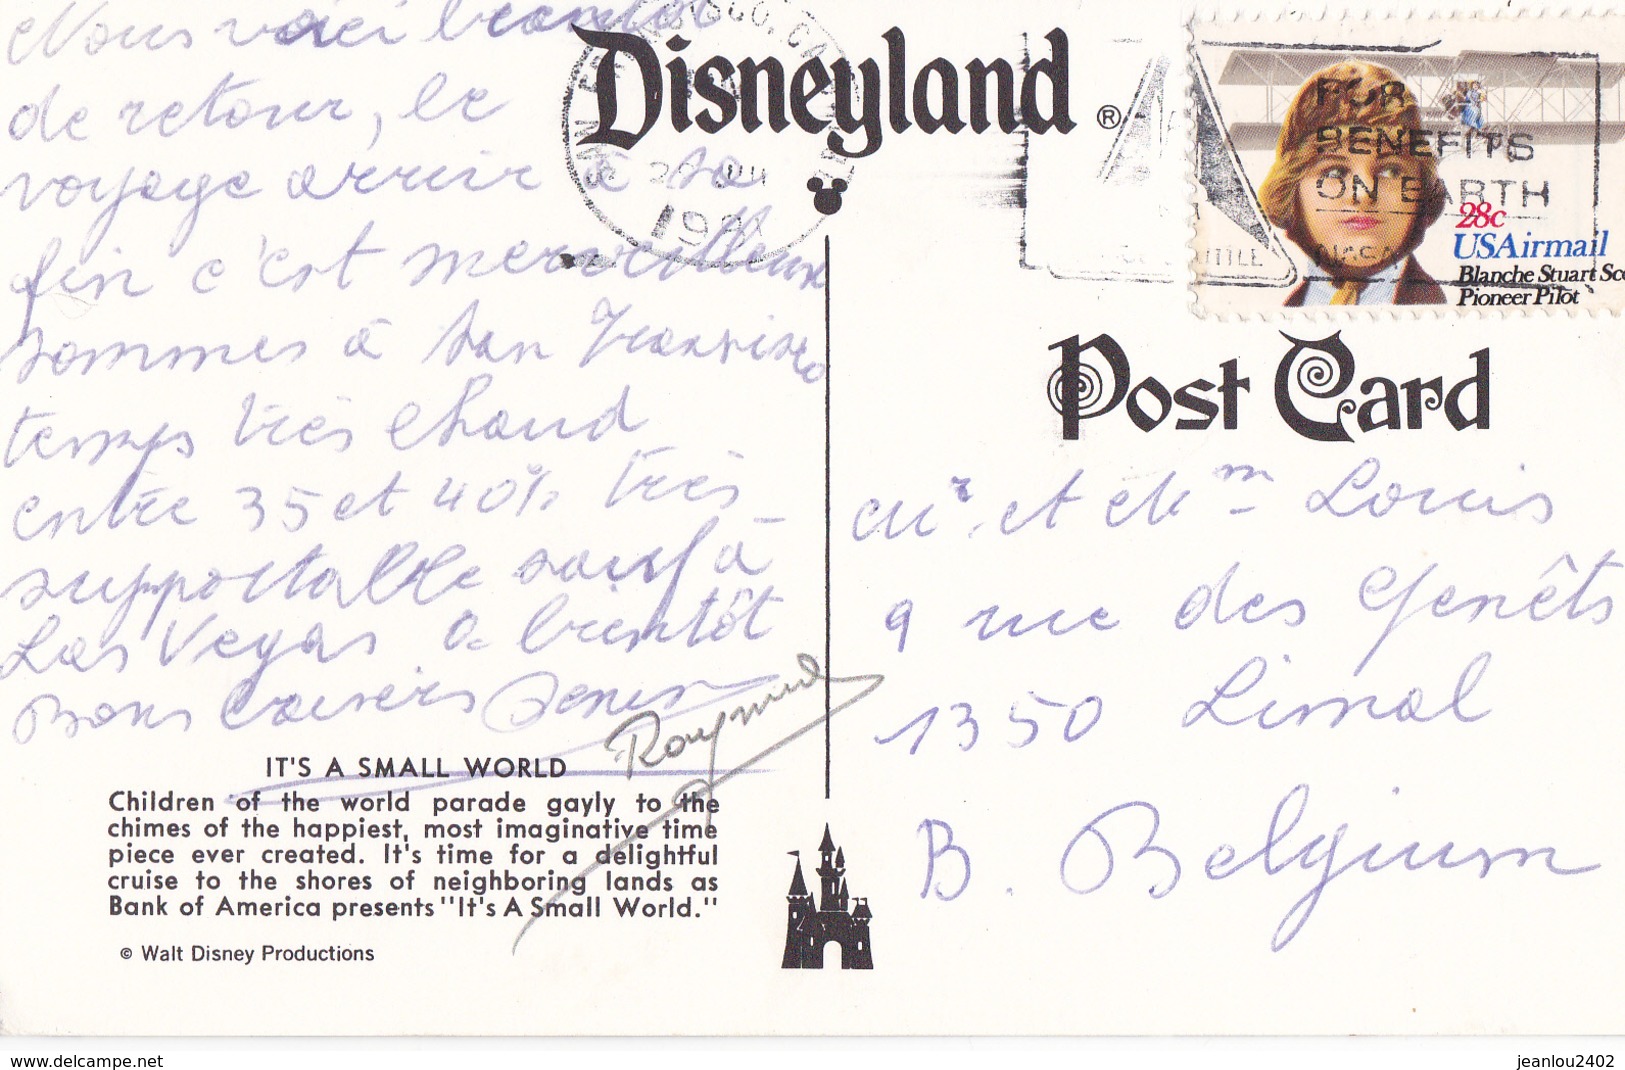 Nous voici bientôt
de retour, le
voyage arrive à sa
fin c'est merveilleux
sommes à San Francisco
temps très chaud
entre 35 et 40% très
supportable sauf à
Las Vegas a bientôt
Bons baisers Denis
Raymond
IT'S A SMALL WORLD
Children of the world parade gayly to the
chimes of the happiest, most imaginative time
piece ever created. It's time for a delightful
cruise to the shores of neighboring lands as
Bank of America presents "It's A Small World."
© Walt Disney Productions
Disneyland ®
FOR
BENEFITS
ON EARTH
NASA
28c
USAirmail
Blanche Stuart Sco
Pioneer Pilot
Post Card
Louis
9 rue des Genêts
1350 Limal
B. Belgium
www.delcampe.net
jeanlou2402